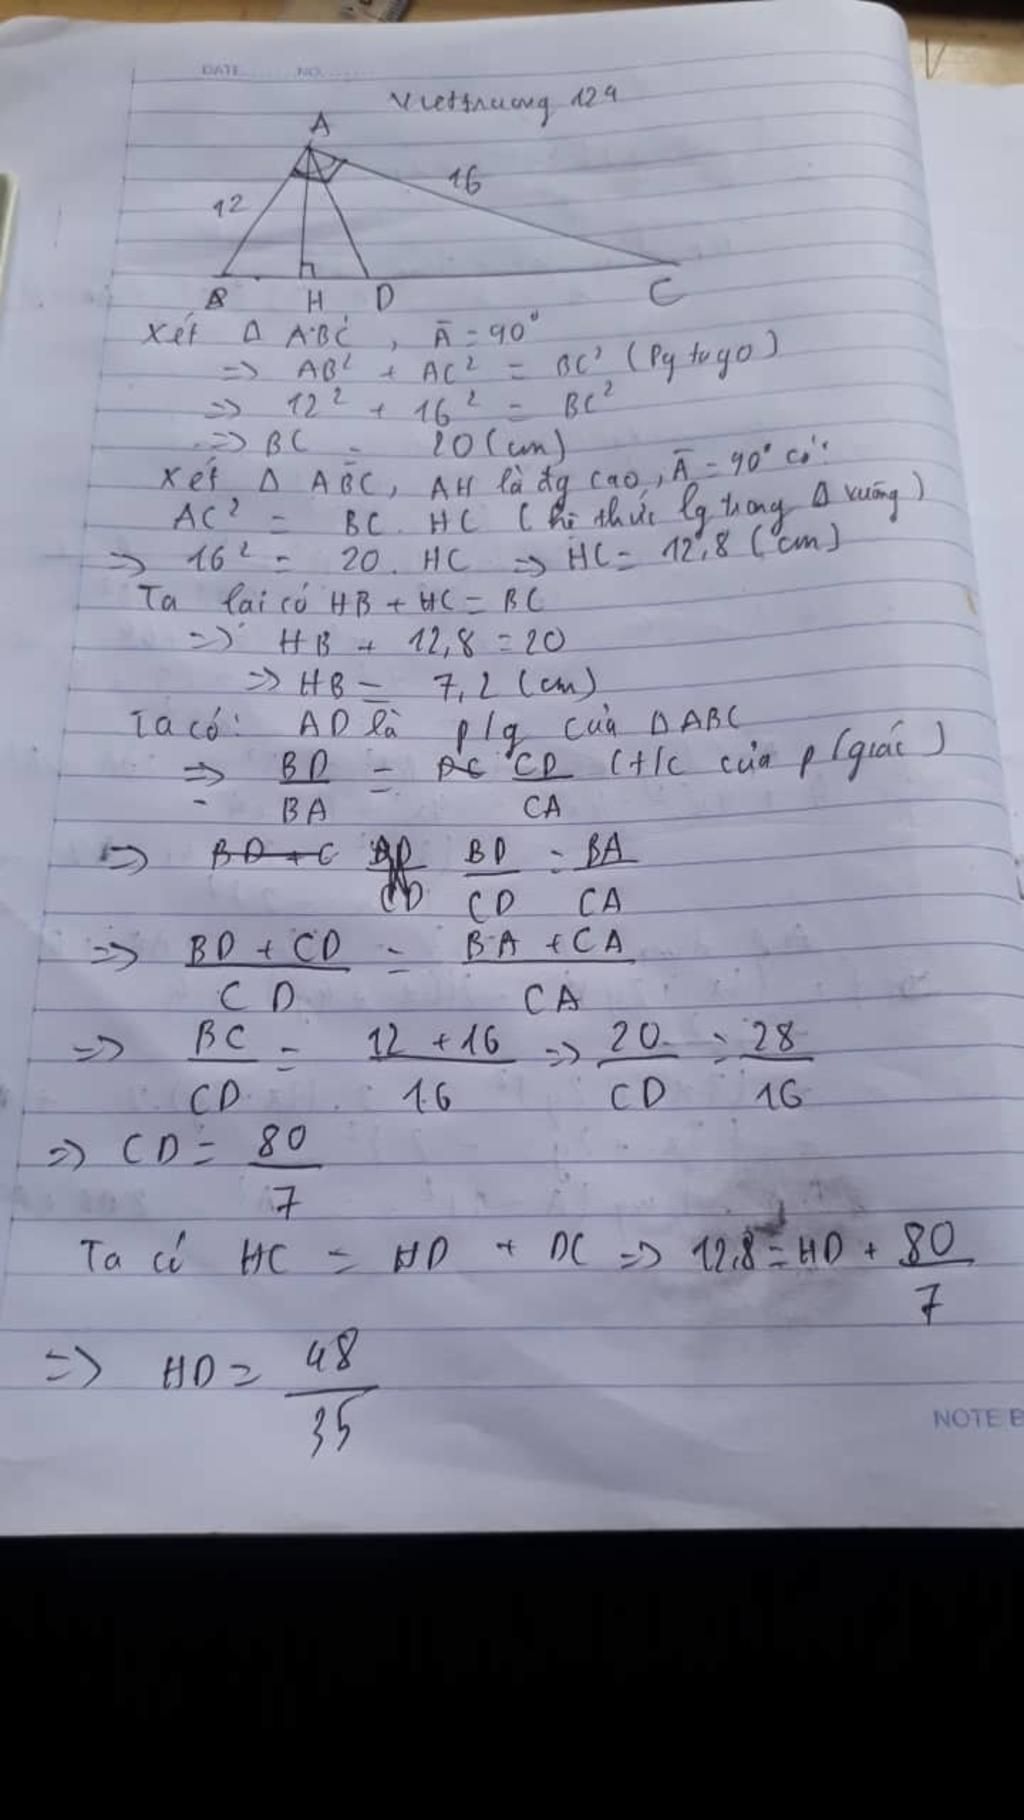 DATE NO.
Viettruong 129
A
12
16
B H D C
Xét Δ ABC, Â = 90°
=> AB² + AC² = BC² (Pytago)
=> 12² + 16² = BC²
=> BC = 20 (cm)
Xét Δ ABC, AH là đg cao, Â = 90° có:
AC² = BC. HC (hệ thức lg trong Δ vuông)
=> 16² = 20. HC => HC = 12,8 (cm)
Ta lại có HB + HC = BC
=> HB + 12,8 = 20
=> HB = 7,2 (cm)
Ta có: AD là p/g của ΔABC
=> BD/BA = CD/CA (t/c của p/giác)
=> BD/CD = BA/CA
=> BD + CD / CD = BA + CA / CA
=> BC/CD = 12 + 16 / 16 => 20/CD = 28/16
=> CD = 80/7
Ta có HC = HD + DC => 12,8 = HD + 80/7
=> HD = 48/35
NOTE B